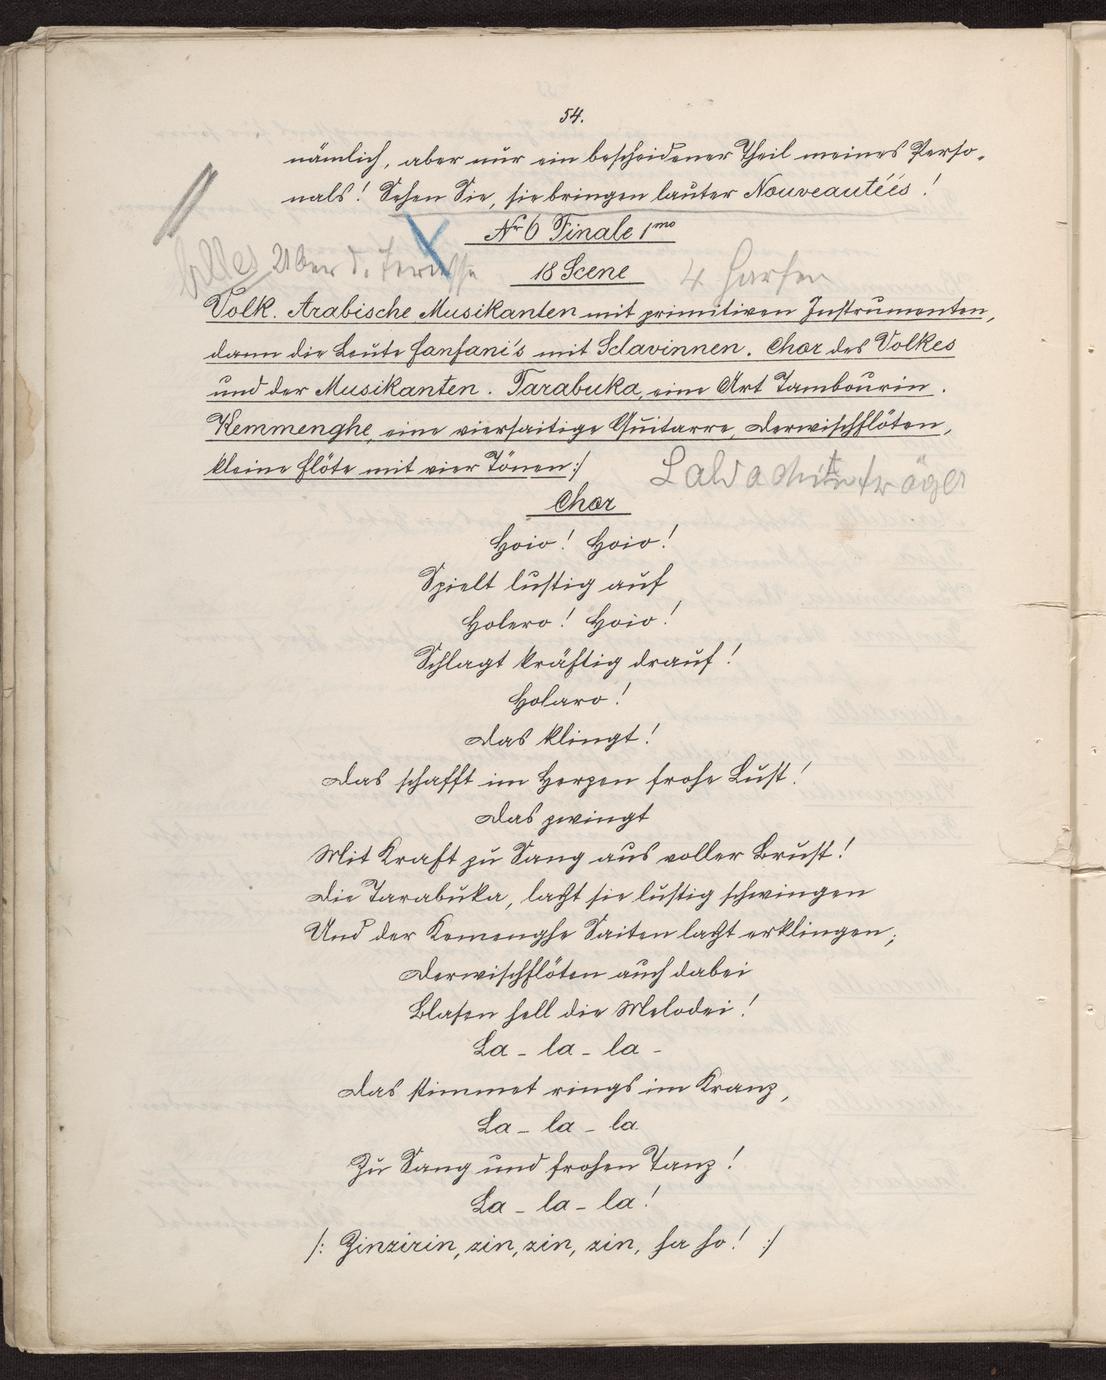 54.
nämlich, aber nur ein bescheidener Theil meines Perso-
nals! Sehen Sie, sie bringen lauter Nouveautéés!
Nr 6 Finale 1mo
Alles Über d. Terrasse
18 Scene
4 Harfen
Volk. Arabische Musikanten mit primitiven Instrumenten,
dann die Leute Fanfani's mit Sclavinnen. Chor des Volkes
und der Musikanten. Tarabuka, eine Art Tambourin.
Kemmenghe, eine viersaitige Guitarre, Derwischflöten,
kleine Flöte mit vier Tönen :/
Baldachinträger
Chor
Hoio! Hoio!
Spielt lustig auf
Holero! Hoio!
Schlagt kräftig drauf!
Holaro!
Das klingt!
Das schafft im Herzen frohe Lust!
Das zwingt
Mit Kraft zu Sang aus voller Brust!
Die Tarabuka, laßt sie lustig schwingen
Und der Kemenghe Saiten laßt erklingen;
Derwischflöten auch dabei
Blasen hell die Melodei!
La - la - la -
Das stimmet rings im Kranz,
La - la - la
Zu Sang und frohen Tanz!
La - la - la!
/: Zinzirin, zin, zin, zin, ha ho! :/